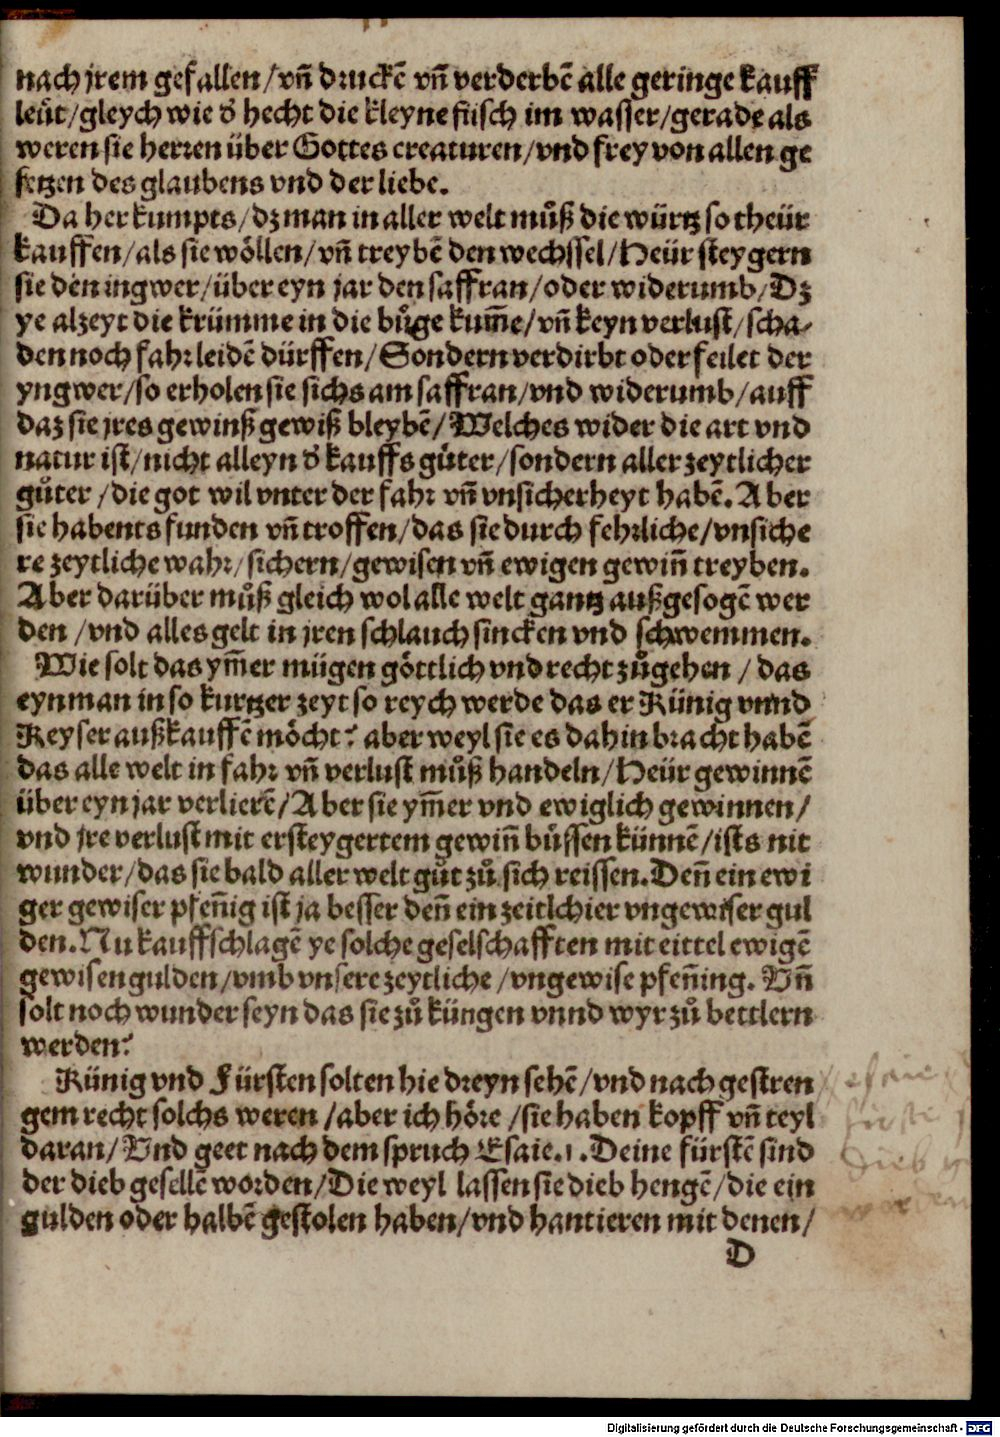 nach jrem gefallen/vñ druckē vñ verderbē alle geringe kauff
leüt/gleych wie d' hecht die kleyne fiisch im wasser/gerade als
weren sie herren über Gottes creaturen/vnd frey von allen ge
setzen des glaubens vnd der liebe.
Da her kumpts/dz man in aller welt můß die würtz so theür
kauffen/als sie wöllen/vñ treybē den wechssel/Heür steygern
sie den ingwer/über eyn jar den saffran/oder widerumb/Dz
ye alzeyt die krümme in die bůge kum̄e/vñ keyn verlust/scha-
den noch fahr leidē dürffen/Sondern verdirbt oder feilet der
yngwer/so erholen sie sichs am saffran/vnd widerumb/auff
daz sie jres gewinß gewiß bleybē/Welches wider die art vnd
natur ist/nicht alleyn d' kauffs gůter/sondern aller zeytlicher
gůter/die got wil vnter der fahr vñ vnsicherheyt habē. Aber
sie habents funden vñ troffen/das sie durch fehrliche/vnsiche
re zeytliche wahr/sichern/gewisen vñ ewigen gewiñ treyben.
Aber darüber můß gleich wol alle welt gantz außgesogē wer
den/vnd alles gelt in jren schlauch sincken vnd schwemmen.
Wie solt das ym̄er mügen göttlich vnd recht zůgehen/das
eyn man in so kurtzer zeyt so reych werde das er Künig vnnd
Keyser außkauffē möcht? aber weyl sie es dahin bracht habē
das alle welt in fahr vñ verlust můß handeln/Heür gewinnē
über eyn jar verlierē/Aber sie ym̄er vnd ewiglich gewinnen/
vnd jre verlust mit ersteygertem gewiñ bůssen künnē/ists nit
wunder/das sie bald aller welt gůt zů sich reissen. Deñ ein ewi
ger gewiser pfeñig ist ja besser deñ ein zeitlchier vngewiser gul
den. Nu kauffschlagē ye solche geselschafften mit eittel ewigē
gewisen gulden/vmb vnsere zeytliche/vngewise pfeñing. Vñ
solt noch wunder seyn das sie zů küngen vnnd wyr zů bettlern
werden?
Künig vnd Fürsten solten hie dreyn sehē/vnd nach gestren
gem recht solchs weren/aber ich höre/sie haben kopff vñ teyl
daran/Vnd geet nach dem spruch Esaie.1. Deine fürstē sind
der dieb gesellē worden/Die weyl lassen sie dieb hengē/die ein
gulden oder halbē gestolen haben/vnd hantieren mit denen/
D
Digitalisierung gefördert durch die Deutsche Forschungsgemeinschaft - DFG